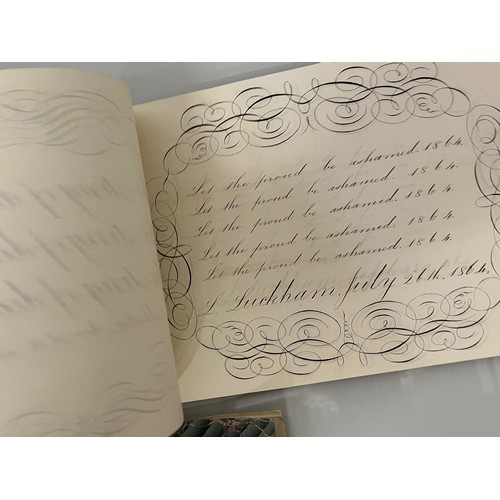 Let the proud be ashamed. 1864.
Let the proud be ashamed. 1864.
Let the proud be ashamed. 1864.
Let the proud be ashamed. 1864.
Let the proud be ashamed. 1864.
Luckham, July 26th, 1864,